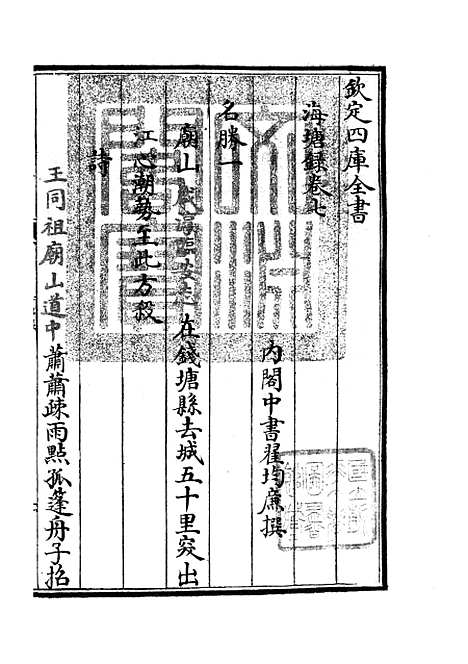 欽定四庫全書
海塘録卷七
內閣中書翟均廉撰
名勝一
廟山咸淳臨安志在錢塘縣去城五十里突出
江心潮勢至此方殺
詩
王同祖廟山道中蕭蕭疎雨點孤蓬舟子招